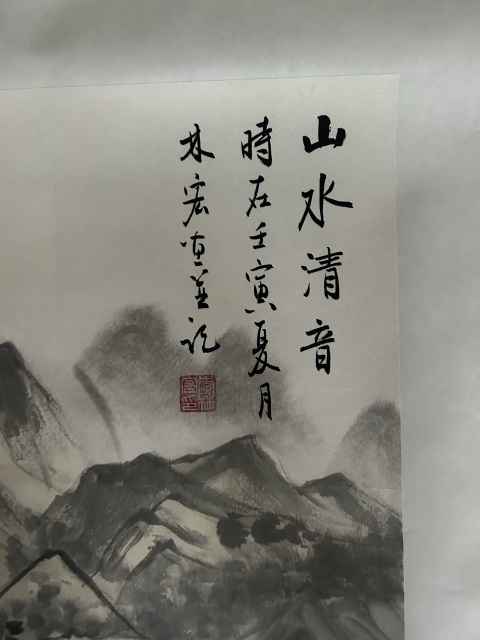 山水清音
時在壬寅夏月
林宏画並记